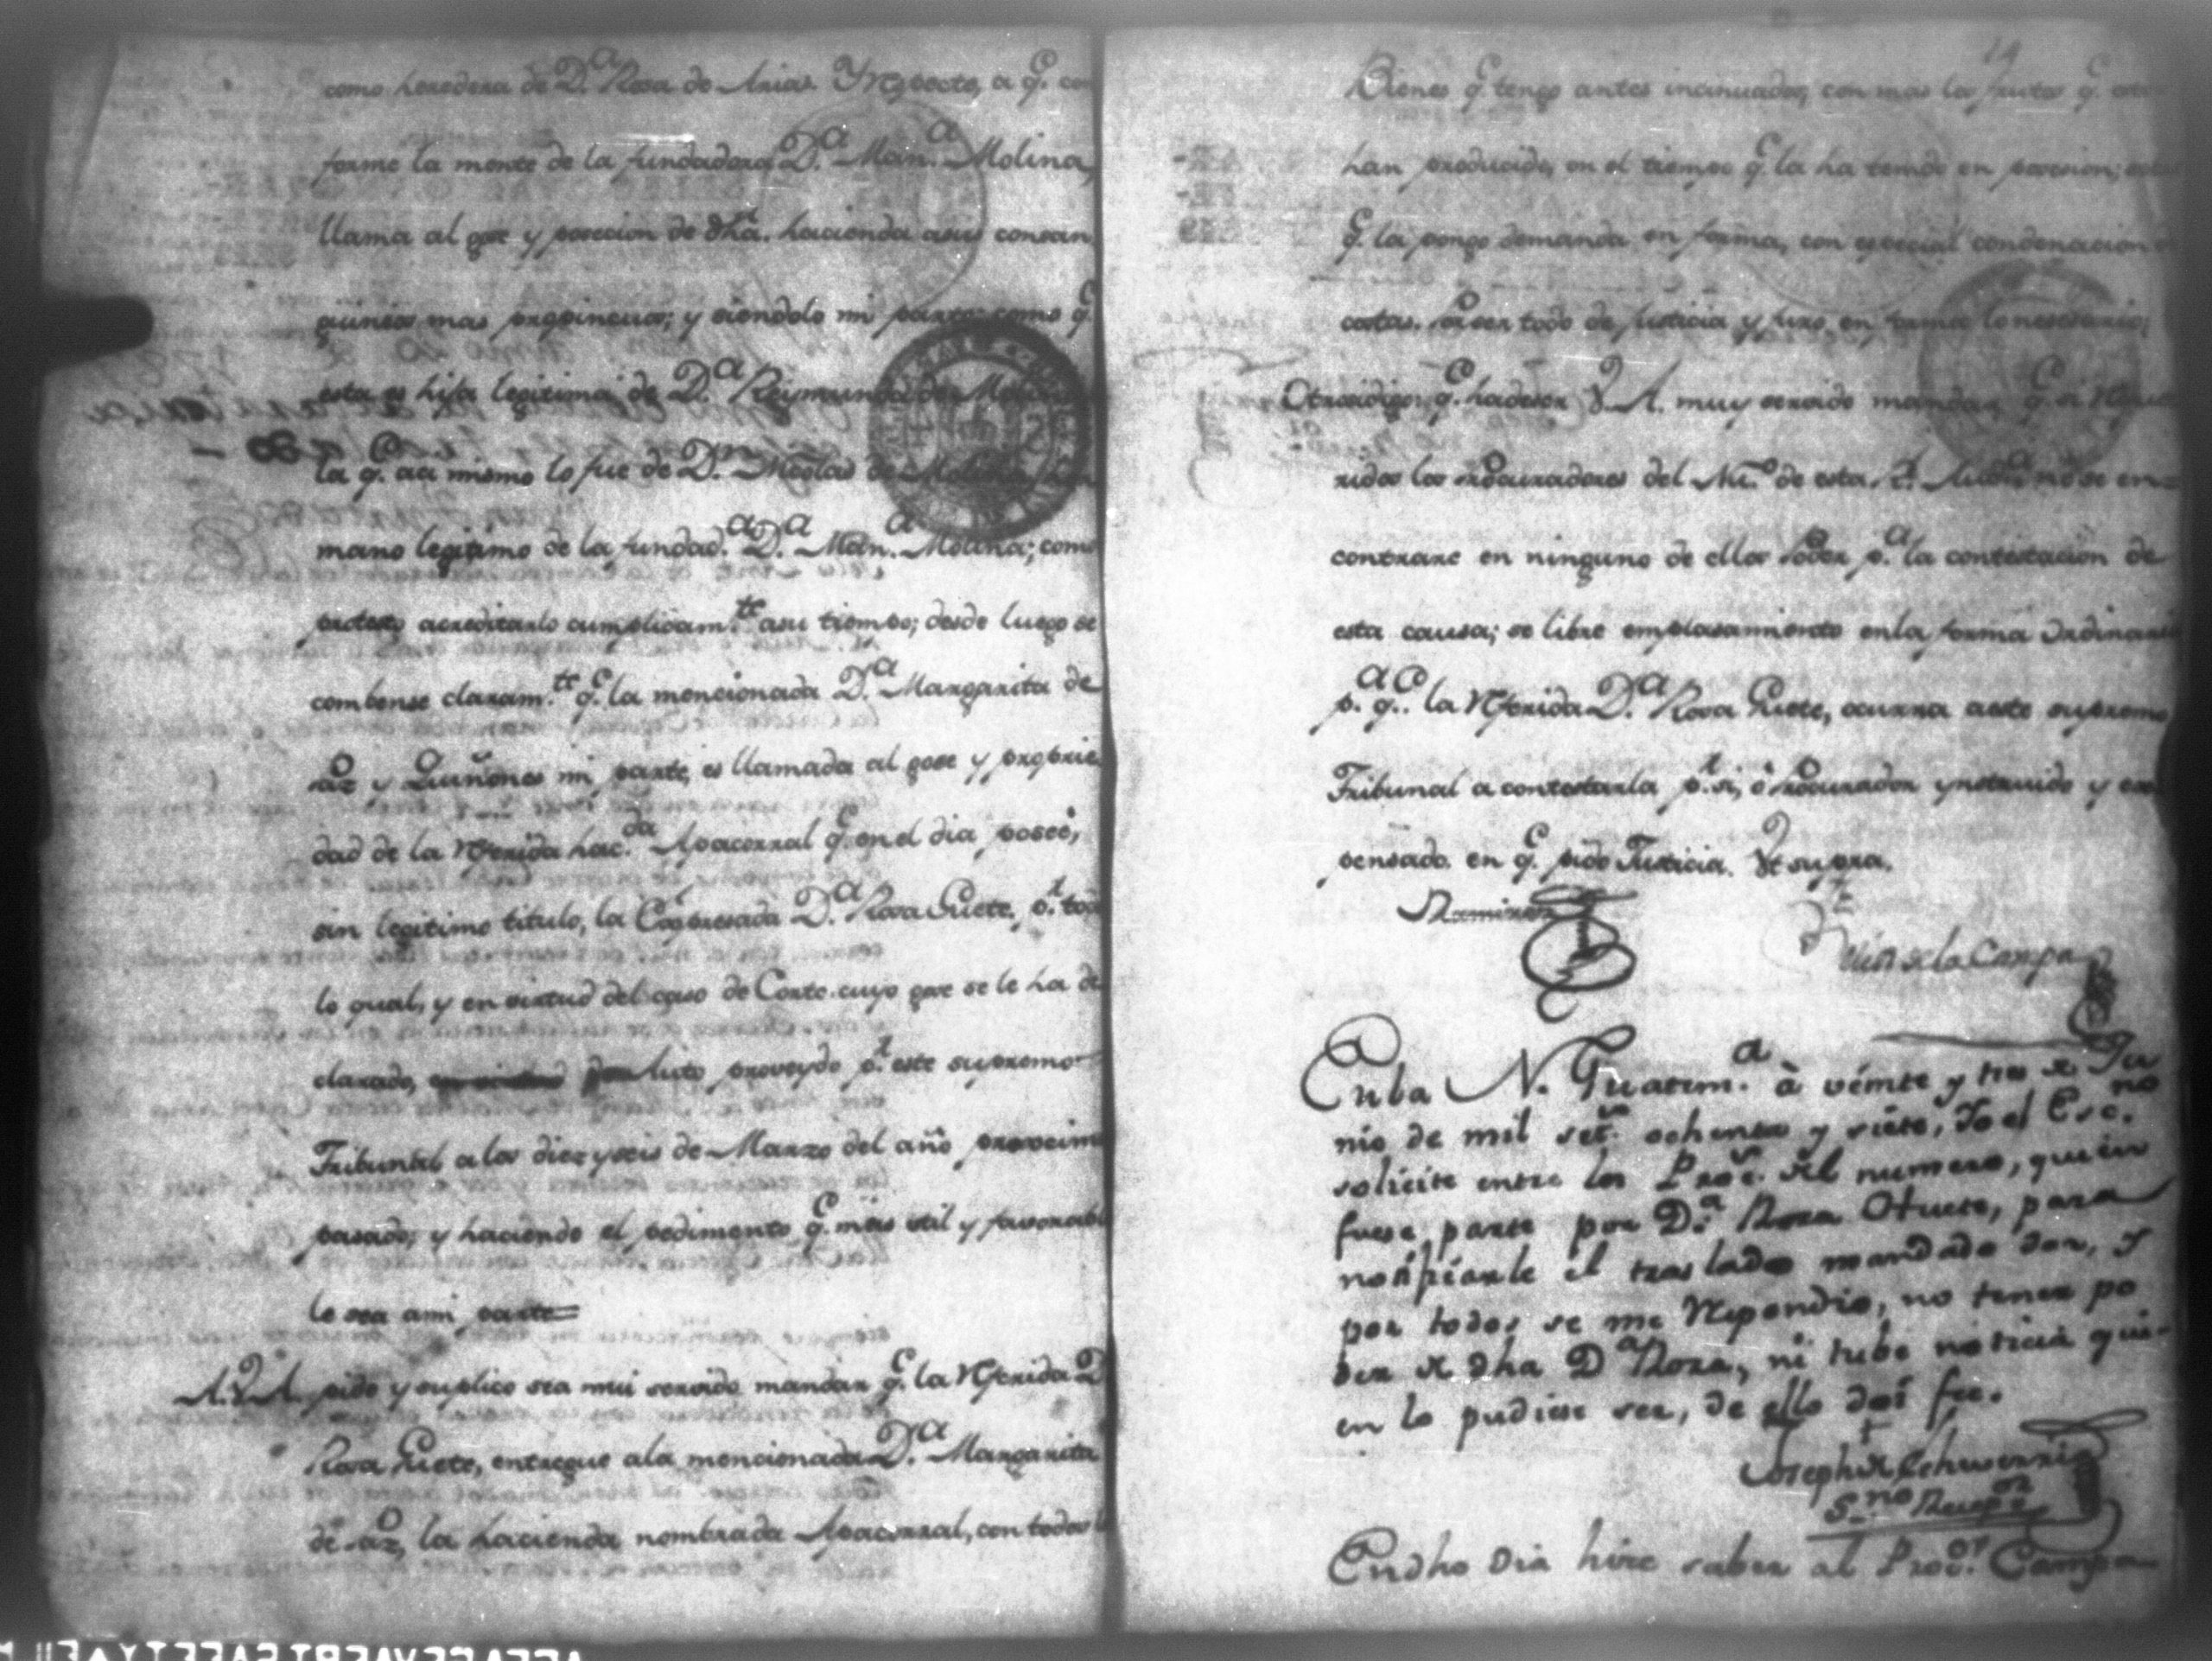 como heredera de D.ª Rosa de Arias. Y respecto, a q.e con
forme la mente de la fundadora D.ª Man.ª Molina,
llama al gose y posecion de dha. hacienda asus consan
guineos mas propincuos; y siendolo mi parte; como q.e
esta es hija legitima de D.ª Reimunda de Molina
la q.e asi mismo lo fue de D.n Nicolas de Molina, her
mano legitimo de la fundad.ª D.ª Man.ª Molina; como
protesto acreditarlo cumplidam.te asu tiempo; desde luego se
combense claram.te q.e la mencionada D.ª Margarita de
Paz y Quiñones mi parte, es llamada al gose y proprie
dad de la referida hac.da Apacorral q.e en el dia poseé,
sin legitimo titulo, la Expresada D.ª Rosa Guete, p.r todo
lo qual, y en virtud del caso de Corte cuyo gose se le ha de
clarado, Auto proveydo p.r este supremo
Tribunal alos diez y seis de Marzo del año proxcimo
pasado; y haciendo el pedimento q.e mas util y favorable
le sea ami parte
A.V.A. pido y suplico sea mui servido mandar q.e la referida D.
Rosa Guete, entregue ala mencionada D.ª Margarita
de Paz, la hacienda nombrada Apacorral, con todos l
14
Bienes q.e tengo antes incinuados, con mas los frutos q.e estos
han producido, en el tiempo q.e la ha tenido en posesion;
q.e la pongo demanda en forma, con especial condenacion
costas. Por ser todo de justicia y juro en forma lo nesesario,
Otrosi digo: q.e ha deser V.A. muy servido mandar q.e si reque
ridos los Procuradores del Nu.o de esta R.l Aud.a no se en
contrare en ninguno de ellos Poder p.ª la contestacion de
esta causa; se libre emplasamiento enla forma Ordinaria
p.ª q.e la referida D.ª Rosa Guete, ocurra aeste supremo
Tribunal a contestarla p.r si, ó Procurador ynstruido y ex
pensado. en q.e pido Justicia. Vt supra.
Ramirez
de la Campa
Enla N. Guatem.ª à veinte y tres de Ju
nio de mil set.s ochenta y siete, Yo el Esc.no
solicite entre los Proc.s del numero, quien
fuese parte por D.ª Rosa Huete, para
notificarle el traslado mandado dar, y
por todos se me respondio, no tener po
der de dha D.ª Rosa, ni tube noticia qui-
en lo pudiese ser, de ello doi fee.
Joseph de Echeverria
S.no Recep.or
En dho Dia hise saber al Proc.or Campa